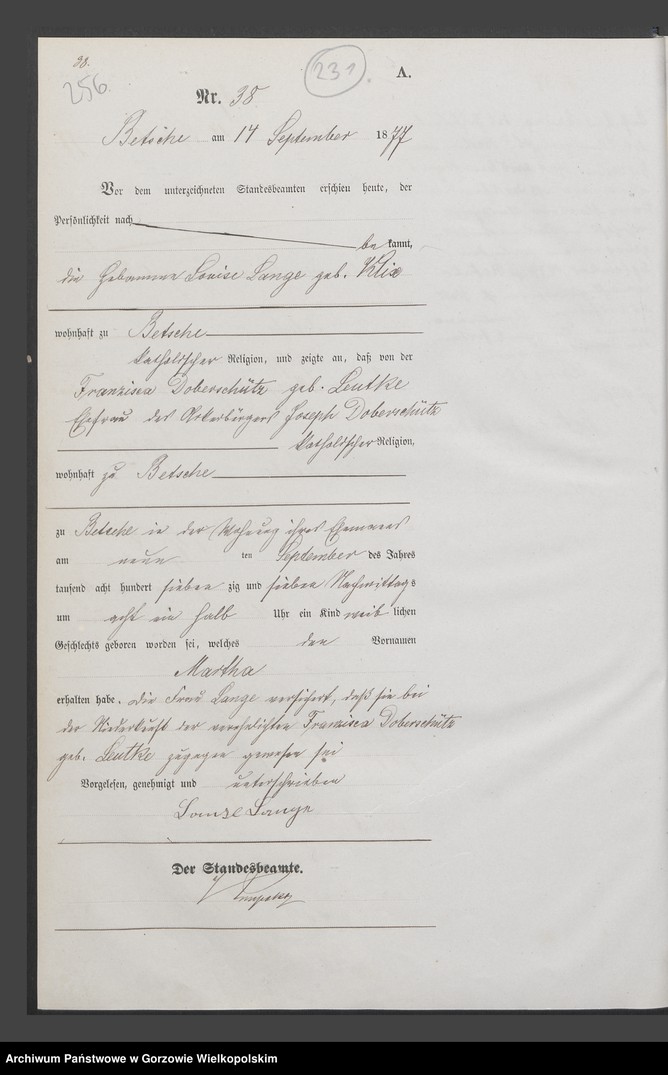 38.
256.
231.
A.
Nr. 38
Betsche am 14 September 1877
Vor dem unterzeichneten Standesbeamten erschien heute, der
Persönlichkeit nach
be kannt,
die Hebamme Louise Lange geb. Klix
wohnhaft zu Betsche
katholischer Religion, und zeigte an, daß von der
Franzisca Doberschütz geb. Leutke
Ehefrau des Ackerbürgers Joseph Doberschütz
katholischer Religion,
wohnhaft zu Betsche
zu Betsche in der Wohnung ihres Ehemannes
am neun ten September des Jahres
tausend acht hundert sieben zig und sieben Nachmittags
um acht ein halb Uhr ein Kind weib lichen
Geschlechts geboren worden sei, welches den Vornamen
Martha
erhalten habe. Die Frau Lange versichert, daß sie bei
der Niederkunft der verehelichten Franzisca Doberschütz
geb. Leutke zugegen gewesen sei
Vorgelesen, genehmigt und unterschrieben
Louise Lange
Der Standesbeamte.
Archiwum Państwowe w Gorzowie Wielkopolskim